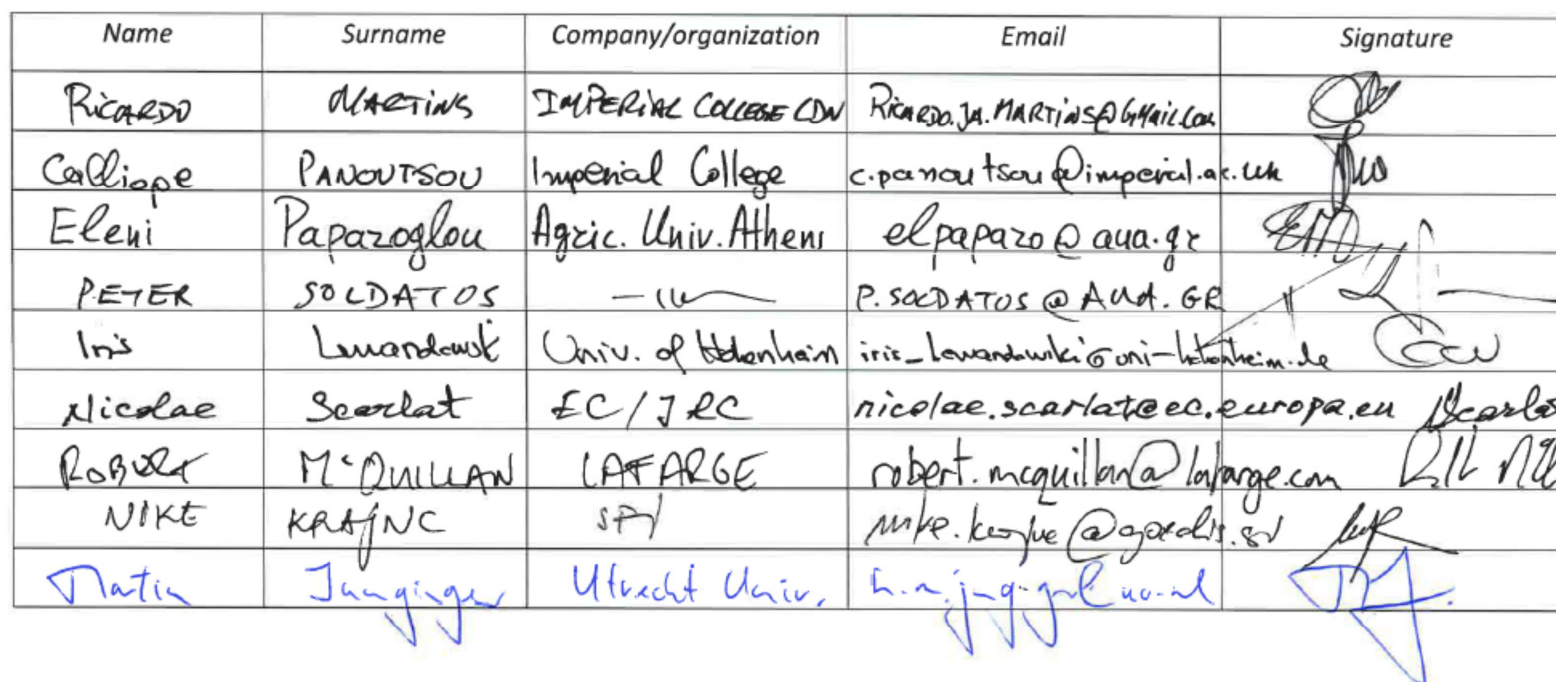 Name Surname Company/organization Email Signature
RICARDO MARTINS IMPERIAL COLLEGE LDN RICARDO.JA.MARTINS@GMAIL.COM
Calliope PANOUTSOU Imperial College c.panoutsou@imperial.ac.uk
Eleni Papazoglou Agric. Univ. Athens elpapazo@aua.gr
PETER SOLDATOS P.SOLDATOS@AUA.GR
Iris Lewandowski Univ. of Hohenheim iris_lewandowski@uni-hohenheim.de
Nicolae Scarlat EC/JRC nicolae.scarlat@ec.europa.eu Scarlat
ROBERT McQUILLAN LAFARGE robert.mcquillan@lafarge.com
NIKE KRAJNC
Martin Junginger Utrecht Univ.